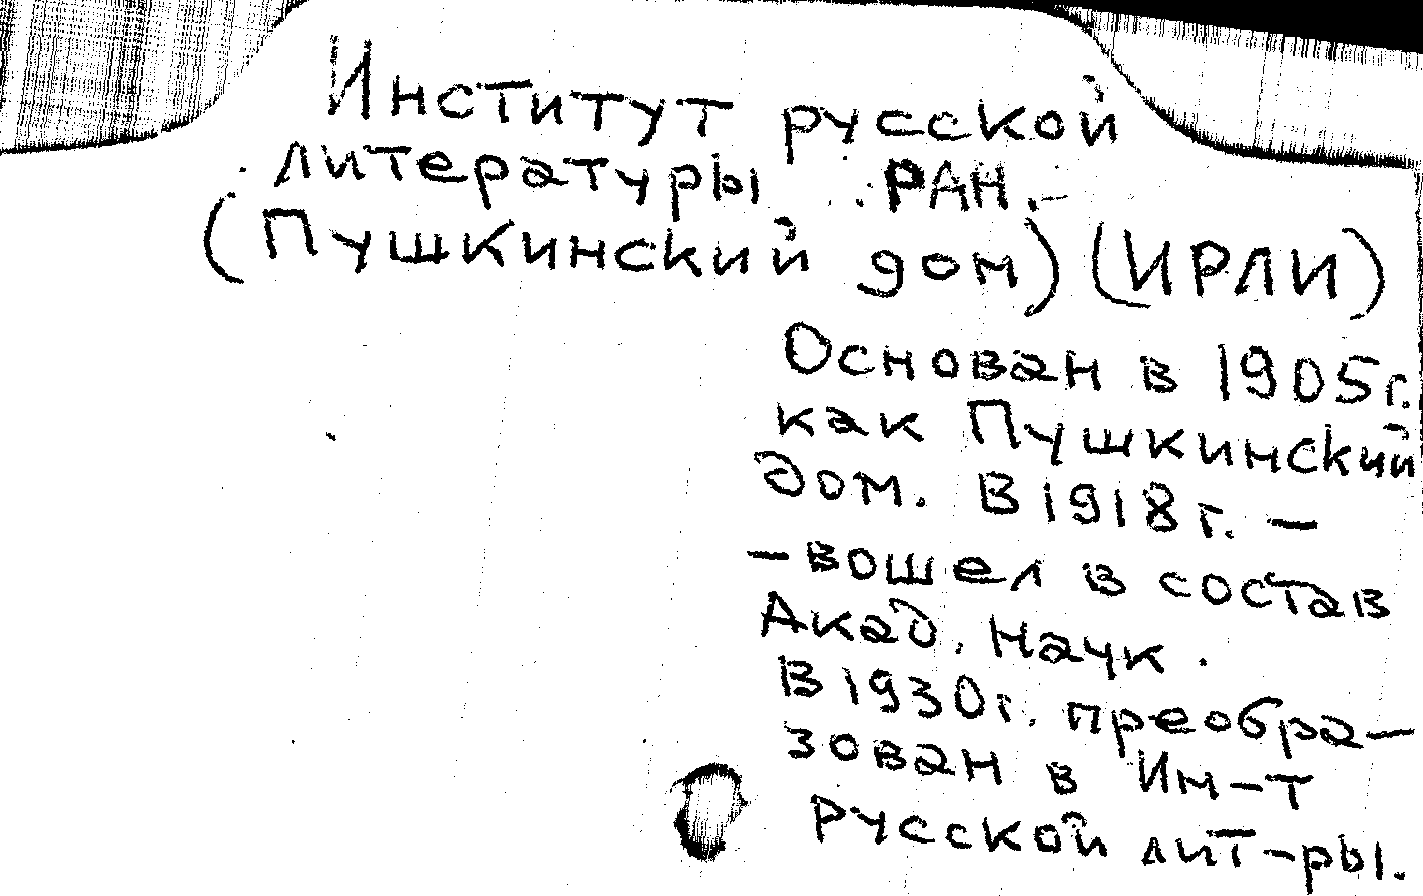 Институт русской
литературы РАН.
(Пушкинский дом) (ИРЛИ)
Основан в 1905г.
как Пушкинский
дом. В 1918 г. –
– вошел в состав
Акад. Наук.
В 1930г. преобра–
зован в Им–т
русской лит–ры.